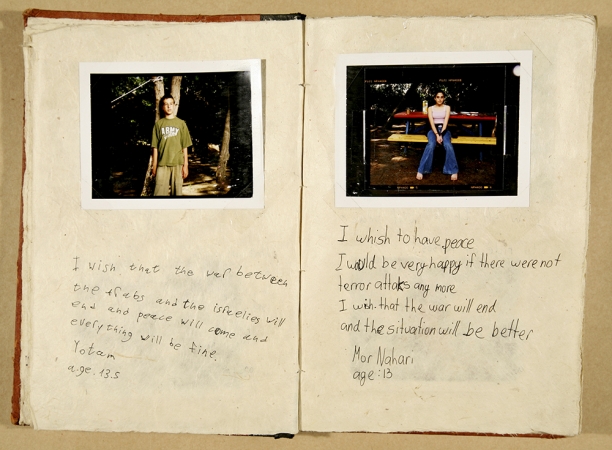 ARMY
I wish that the war between
the Arabs and the israelies will
end and peace will come and
everything will be fine.
Yotam
age. 13.5
I whish to have peace
I would be very happy if there were not
terror attaks any more
I wish that the war will end
and the situation will be better
Mor Nahari
age: 13